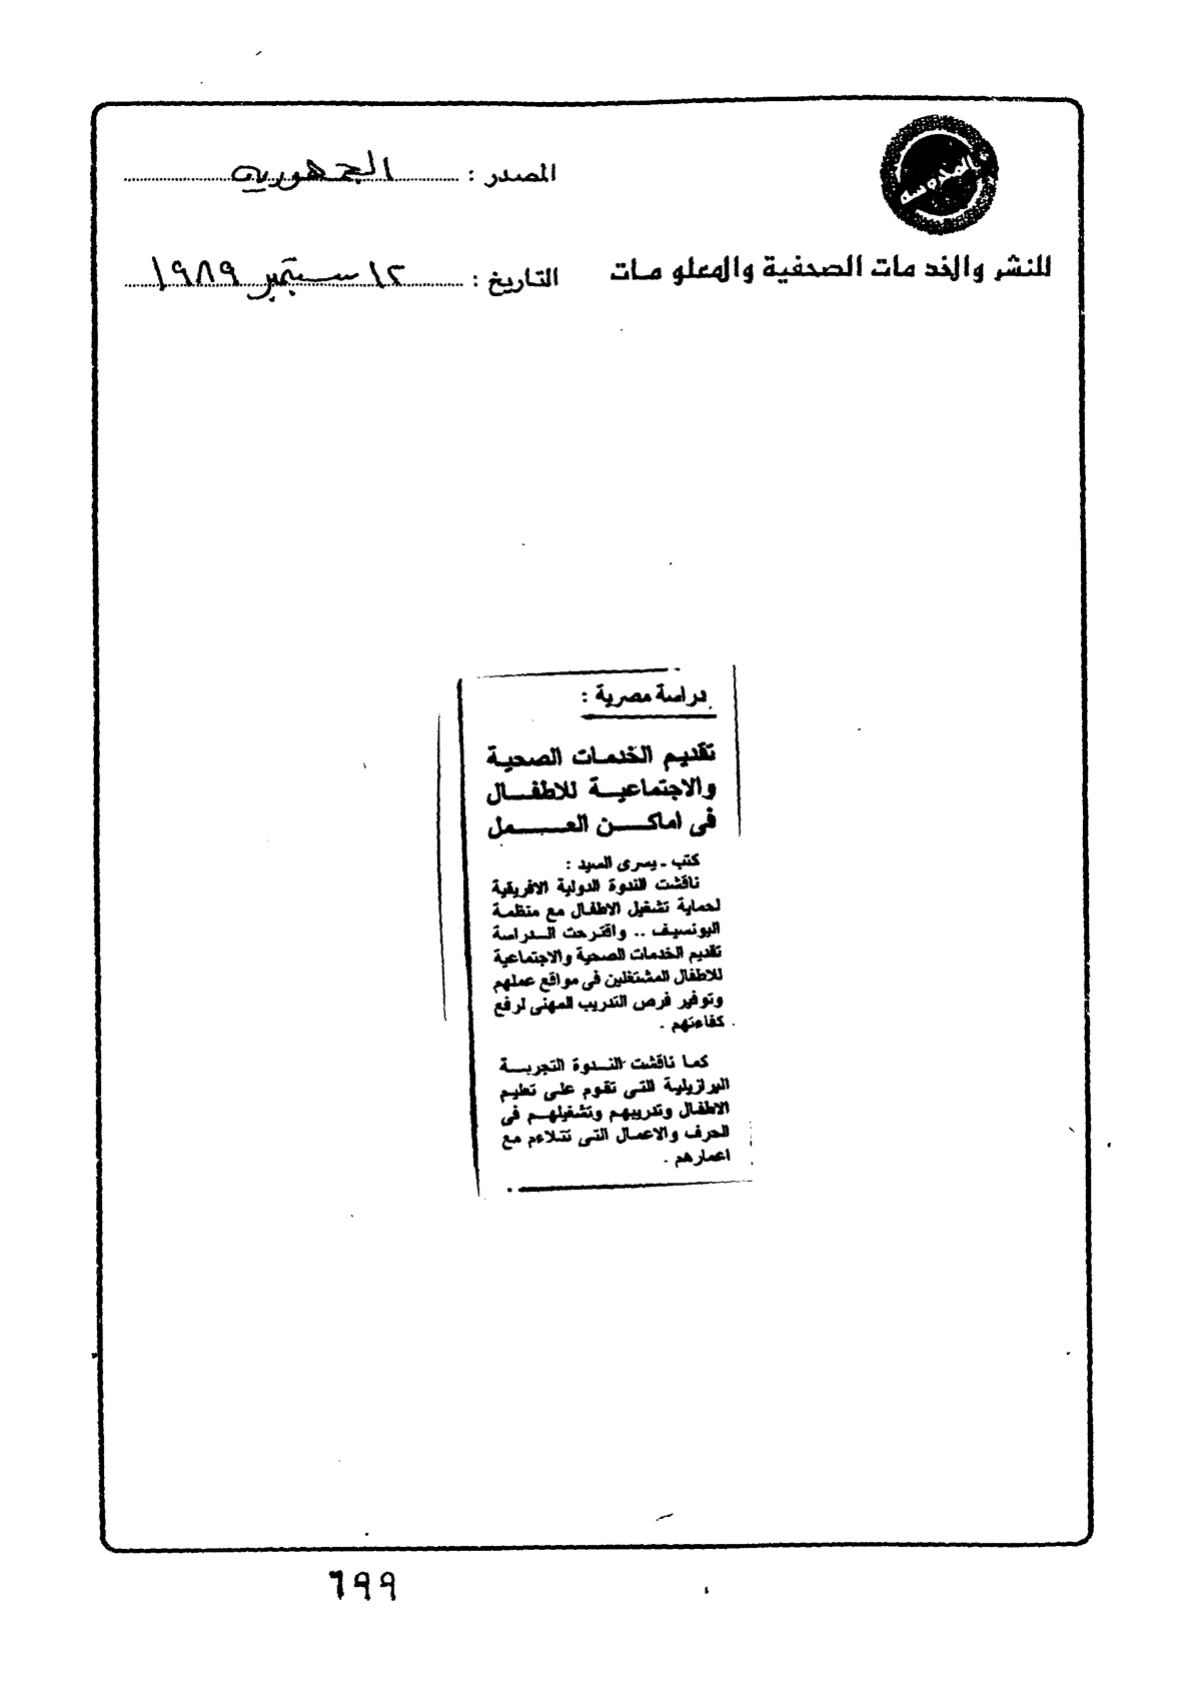 المحروسة
المصدر : الجمهورية
للنشر والخدمات الصحفية والمعلومات
التاريخ : ١٢ سبتمبر ١٩٨٩
دراسة مصرية :
تقديم الخدمات الصحية
والاجتماعيـــة للاطفـــال
فى اماكـــــن العـــــمل
كتب ـ يسرى السيد :
ناقشت الندوة الدولية الافريقية
لحماية تشغيل الاطفال مع منظمة
اليونسيف .. واقترحت الــدراسة
تقديم الخدمات الصحية والاجتماعية
للاطفال المشتغلين فى مواقع عملهم
وتوفير فرص التدريب المهنى لرفع
كفاءتهم .
كما ناقشت النــدوة التجربــة
البرازيلية التى تقوم على تعليم
الاطفال وتدريبهم وتشغيلهــم فى
الحرف والاعمال التى تتلاءم مع
اعمارهم .
٦٩٩